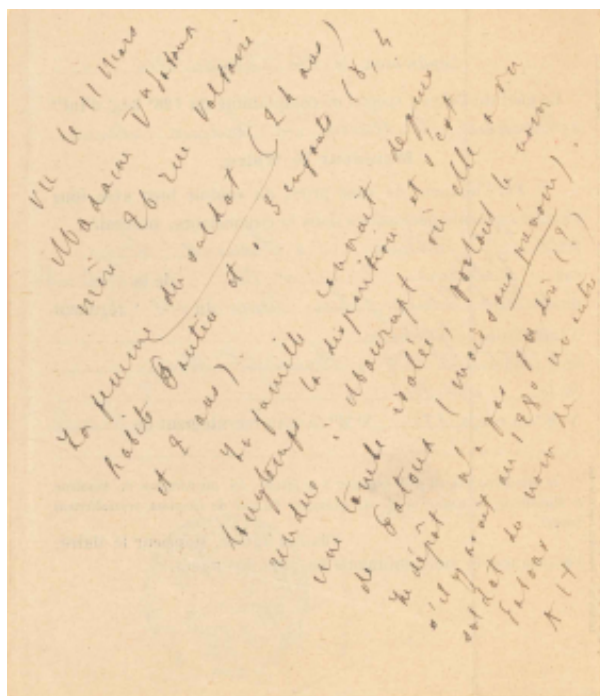 Vu le 11 Mars
Madame
mère 26 rue Voltaire
La femme du soldat (24 ans)
habite et 3 enfants (8, 4
et 2 ans)
La famille connait depuis
longtemps la disparition et s'est
rendue à Maurupt où elle a vu
une tombe isolée, portant le nom
de Patoux (mais sans prénom).
Le dépôt n'a pas pu dire (?)
s'il y avait au 128e un autre
soldat du nom de
Patoux